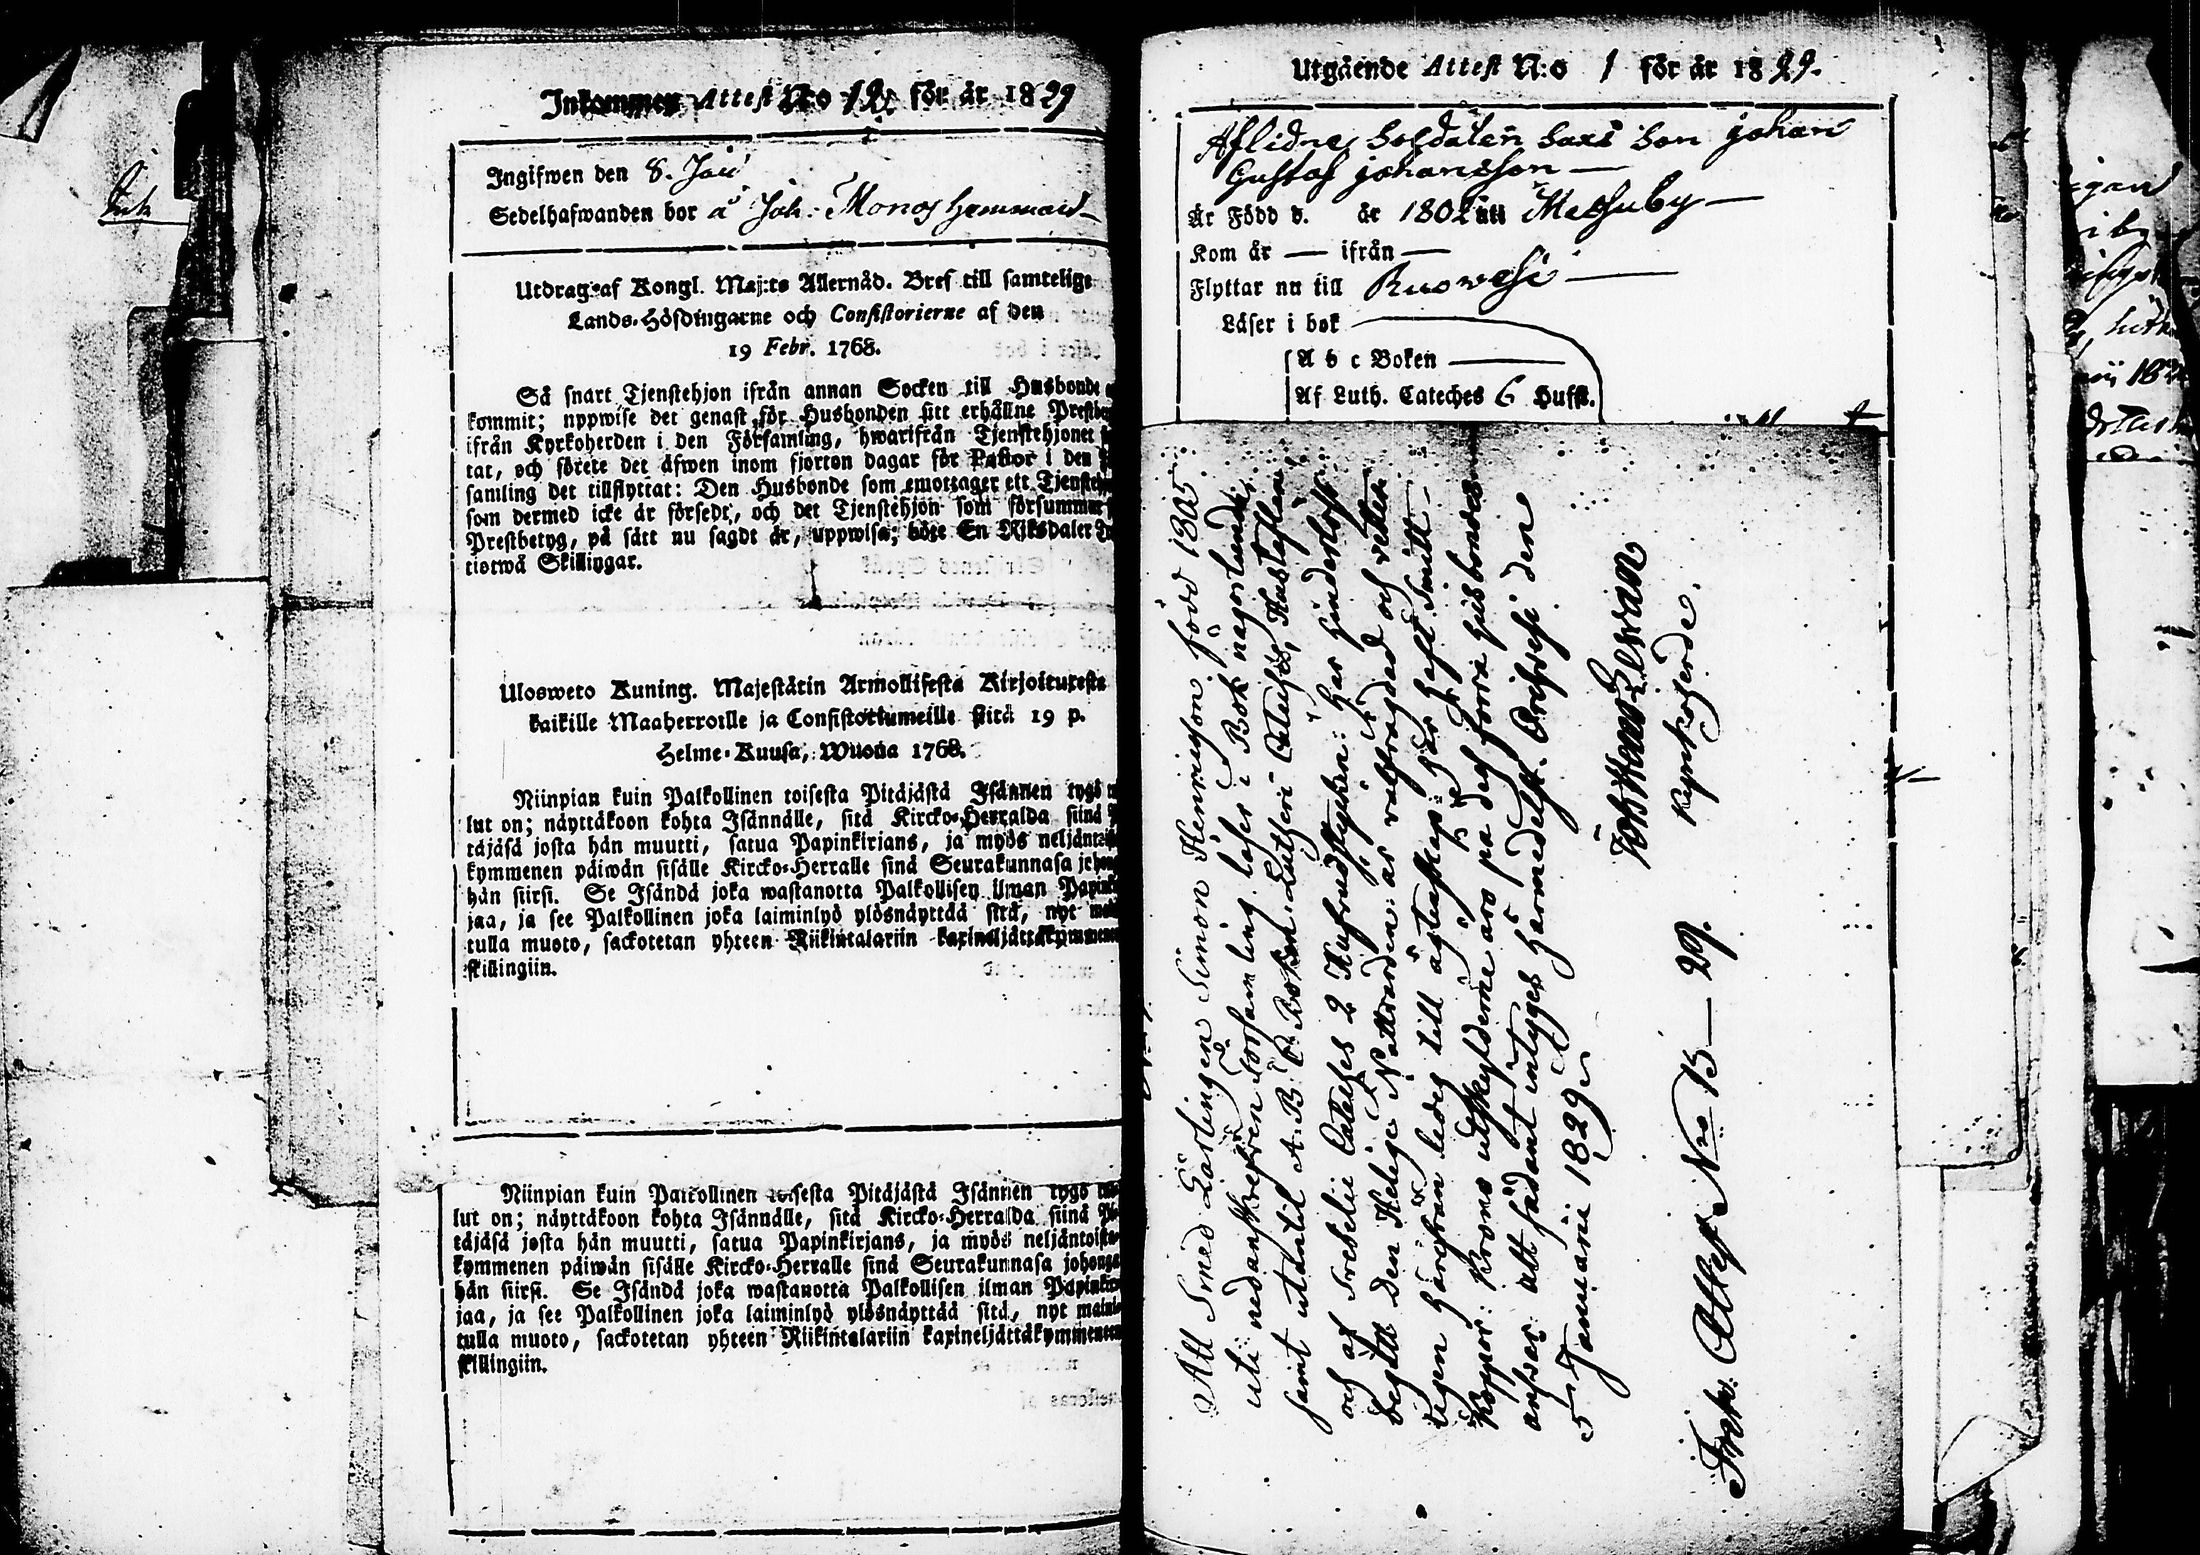 Inkommen Attest N:o 12 för år 1829
Ingifwen den 8. Jan
Sedelhafwanden bor å Joh. Monos hemman
Utdrag af Kongl. Maj:ts Allernåd. Bref till samtelige
Lands-Höfdingarne och Consistorierne af den
19 Febr. 1768.
Så snart Tjenstehjon ifrån annan Socken till Husbonde
kommit; uppwise det genast för Husbonden sitt erhållne
ifrån Kyrkoherden i den Församling, hwarifrån Tjenstehjonet
tat, och förete det äfwen inom fjorton dagar för Pastor i den
samling det tillflyttat: Den Husbonde som emottager ett
som dermed icke är försedt, och det Tjenstehjon som försummar
Prestbetyg, på sätt nu sagdt är, uppwisa; böte En Riksdaler
tiotwå Skillingar.
Ulosweto Kuning. Majestätin Armollisesta Kirjoituxesta
kaikille Maaherroille ja Consistoriumeille siitä 19 p.
Helme-Kuusa, Wuona 1768.
Niinpian kuin Palkollinen toisesta Pitäjästä Isännen tygö
lut on; näyttäkoon kohta Isännälle, sitä Kircko-Herralda siinä
täjäsä josta hän muutti, saatua Papinkirjans, ja myös
kymmenen päiwän sisälle Kircko-Herralle sinä Seurakunnasa
hän siirsi. Se Isändä joka wastanotta Palkollisen ilman
jaa, ja see Palkollinen joka laiminlyö ylösnäyttää sitä, nyt
tulla muoto, sackotetan yhteen Riikintalariin kaxineljättäkymmenen
skillingiin.
Niinpian kuin Palkollinen toisesta Pitäjästä Isännen tygö
lut on; näyttäkoon kohta Isännälle, sitä Kircko-Herralda siinä
täjäsä josta hän muutti, saatua Papinkirjans, ja myös neljäntoista-
kymmenen päiwän sisälle Kircko-Herralle sinä Seurakunnasa johonga
hän siirsi. Se Isändä joka wastanotta Palkollisen ilman
jaa, ja see Palkollinen joka laiminlyö ylösnäyttää sitä, nyt
tulla muoto, sackotetan yhteen Riikintalariin kaxineljättäkymmenen
skillingiin.
Utgående Attest N:o 1 för år 1829.
Aflidne Soldaten Saxs Son Johan
Gustaf Johansson —
Är Född d. år 1802 uti Messuby —
Kom år — ifrån —
Flyttar nu till Ruovesi —
Läser i bok
A b c Boken —
Af Luth. Cateches 6 Hufst.
Att Smeds Lärlingen Simon Henricsson född 1805
uti nedanskrefven Församling, läser i Bok någorlunda,
samt utantil A.B.C. Boken, Lutheri Cateches, Hustaflan
och af Svebelii Cateches 2 Hufvudstycken: har hinderlöst
begått Den Helige Nattvarden: är välfrägdad och veterl.
ligen härifrån ledig till ägtenskap: har haft
Koppor: Krono utskylderne äro på dess förra husbondes
ansvar: att sådant intyges härmedelst. Orihvesi den
5 Januarii 1829.
Kyrkoherde.
Attest Nro 15 — 29.